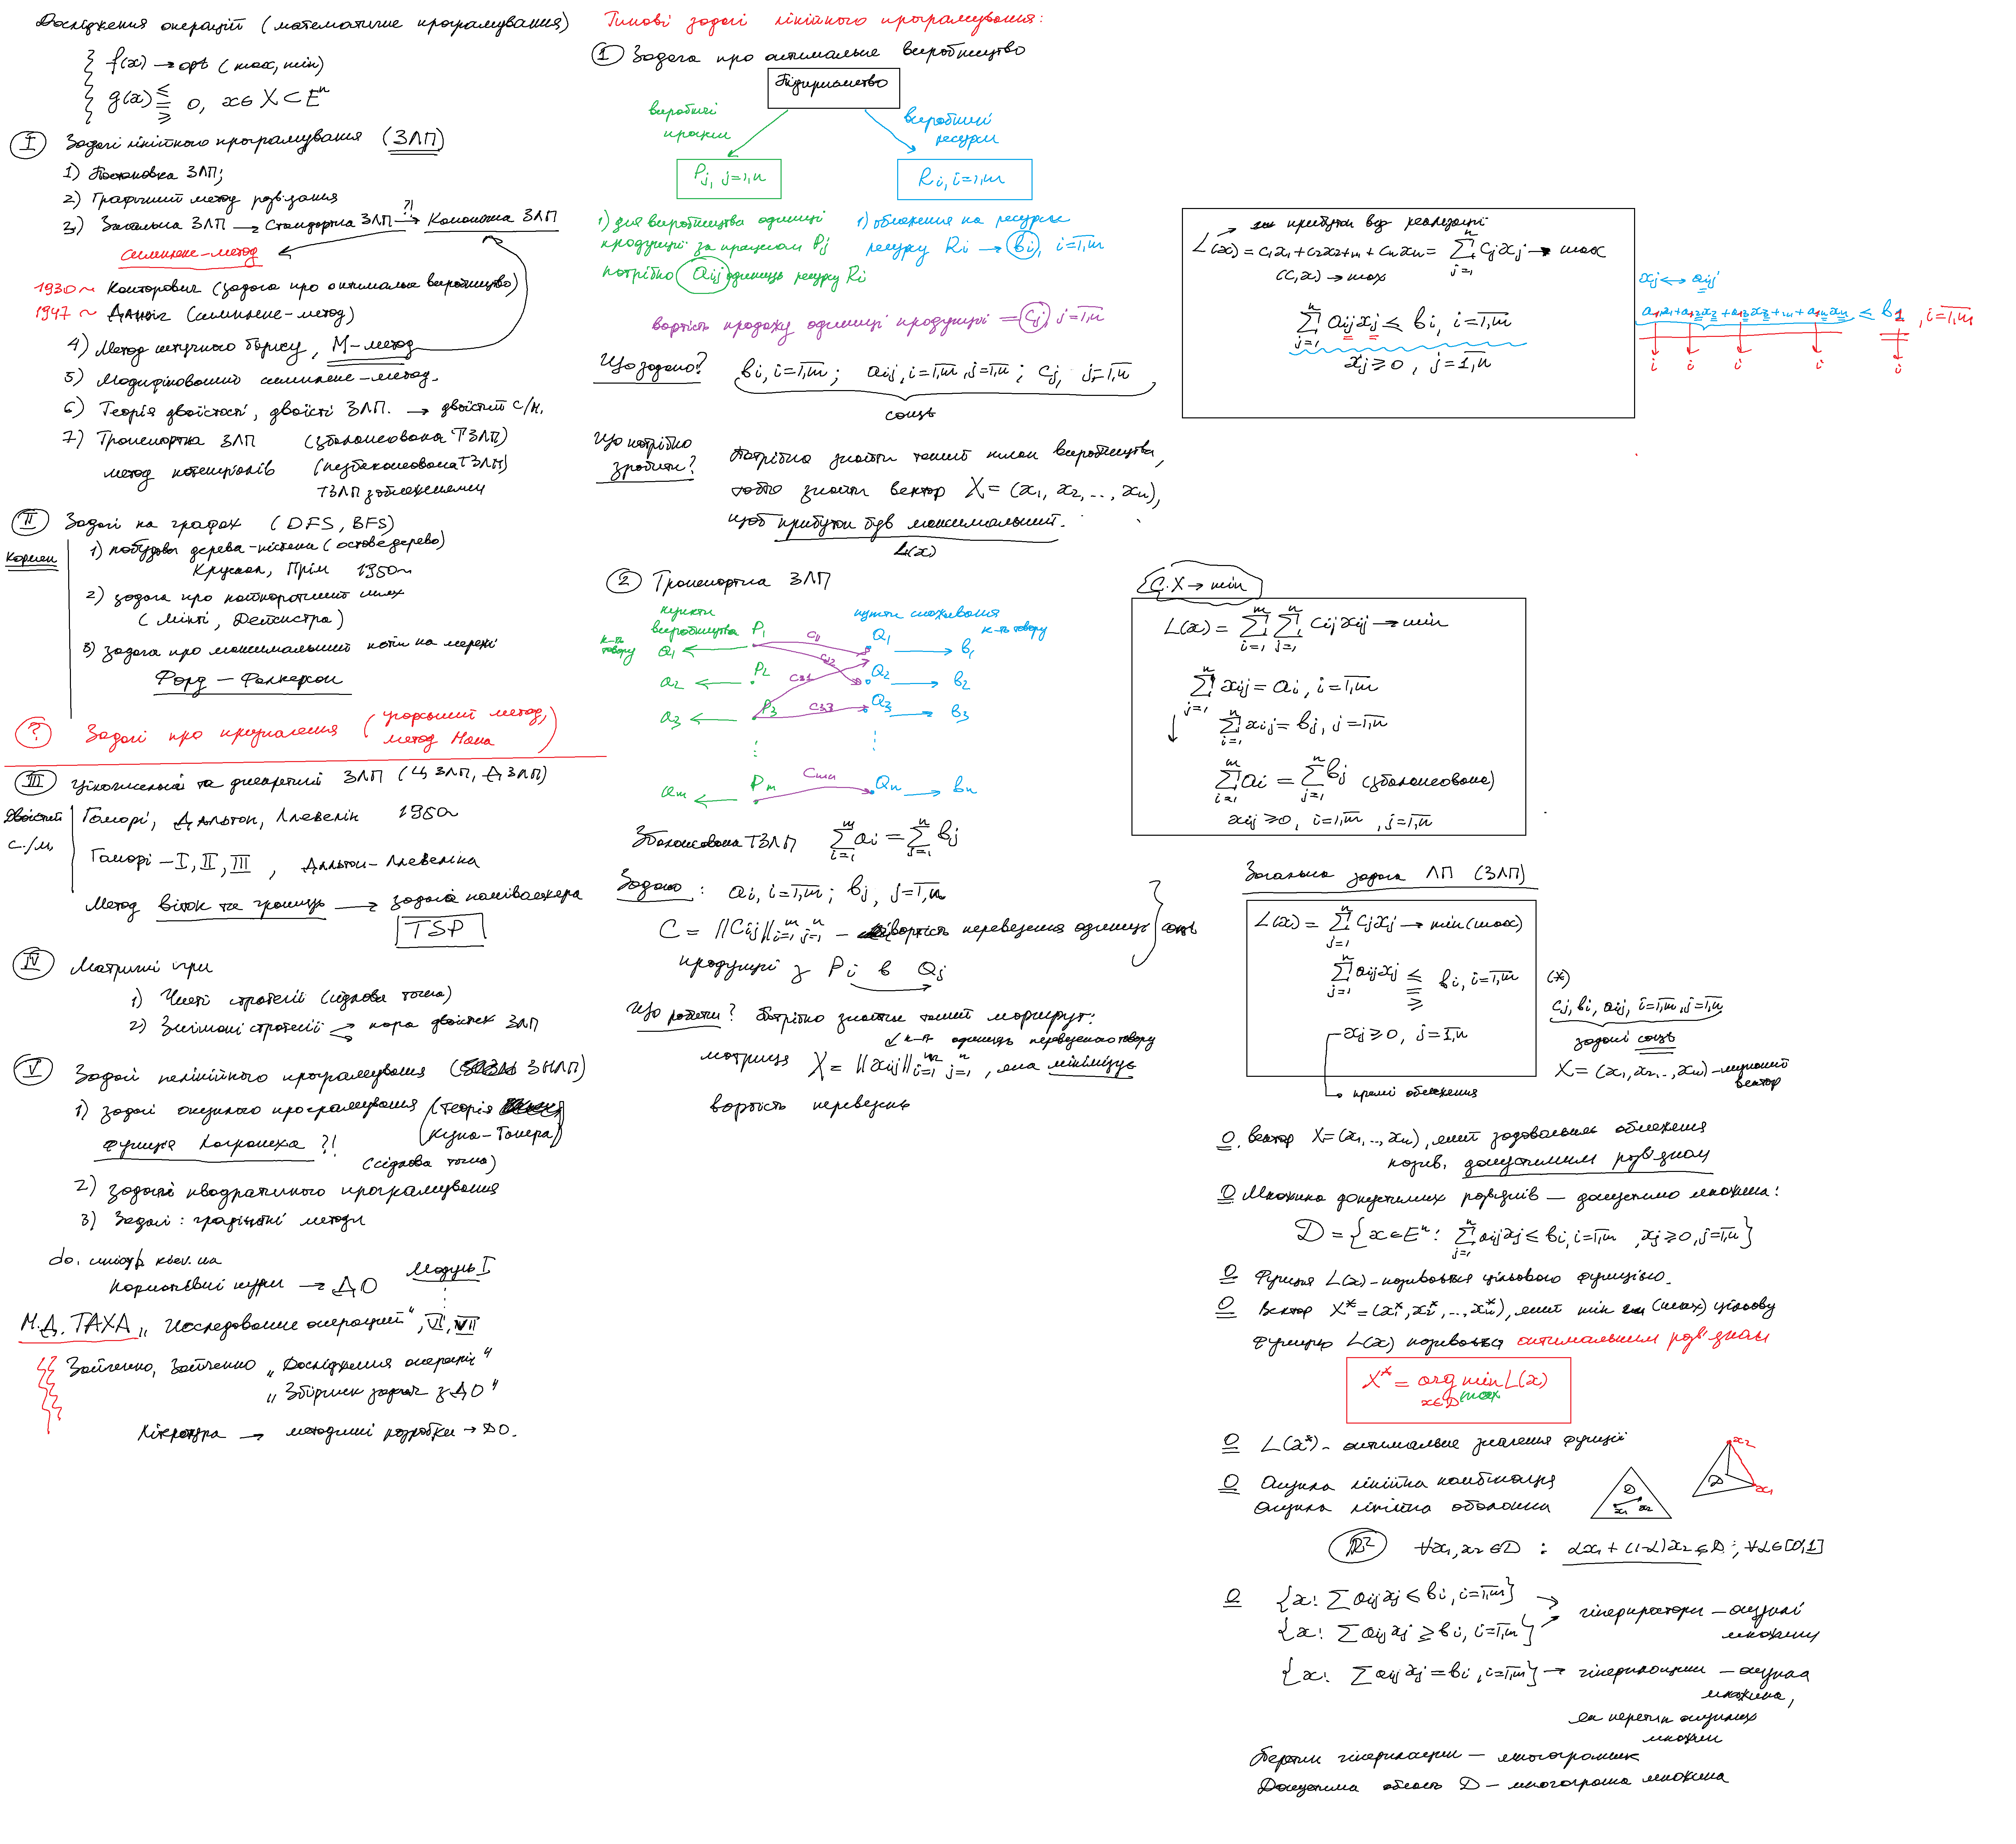 Дослідження операцій (математичне програмування)
f(x) → opt (max, min)
g(x) ≤ = ≥ 0, x ∈ X ⊂ Eⁿ
I Задачі лінійного програмування (ЗЛП)
1) Постановка ЗЛП;
2) Графічний метод розв'язання
3) Загальна ЗЛП → Стандартна ЗЛП → Канонічна ЗЛП
?!
симплекс-метод
1930 ~ Канторович (задача про оптимальне виробництво)
1947 ~ Данціг (симплекс-метод)
4) Метод штучного базису, М-метод
5) Модифікований симплекс-метод.
6) Теорія двоїстості, двоїсті ЗЛП. → двоїстий с/м.
7) Транспортна ЗЛП (збалансована ТЗЛП)
метод потенціалів (незбалансована ТЗЛП)
ТЗЛП з обмеженнями
II Задачі на графах (DFS, BFS)
Кормен
1) побудова дерева-кістяка (остове дерево)
Крускал, Прім 1950~
2) задача про найкоротший шлях
(Мінті, Дейкстра)
3) задача про максимальний потік на мережі
Форд – Фалкерсон
? Задачі про призначення (угорський метод,
метод Мака)
III Цілочисельні та дискретні ЗЛП (ЦЗЛП, ДЗЛП)
Двоїстий с./м.
Гоморі, Дальтон, Ллевелін 1950~
Гоморі – I, II, III, Дальтон-Ллевеліна
Метод віток та границь → задача комівояжера
TSP
IV Матричні ігри
1) Чисті стратегії (сідлова точка)
2) Змішані стратегії → пара двоїстих ЗЛП
V Задачі нелінійного програмування (ЗНЛП)
1) задачі опуклого програмування (теорія
Куна-Такера)
функція Лагранжа ?!
(сідлова точка)
2) задачі квадратичного програмування
3) Задачі: градієнтні методи
do.unicyb.kiev.ua
Нормативні курси → ДО
Модуль I
М.Д. ТАХА „Исследование операций", VI, VII
Зайченко, Зайченко „Дослідження операцій"
„Збірник задач з ДО"
Література → методичні розробки → ДО.
Типові задачі лінійного програмування:
1 Задача про оптимальне виробництво
Підприємство
виробничі
процеси
виробничі
ресурси
Pj, j=1,n
Ri, i=1,m
1) для виробництва одиниці
продукції за процесом Pj
потрібно aij одиниць ресурсу Ri
1) обмеження на ресурси
ресурсу Ri → bi, i=1,m
вартість продажу одиниці продукції = cj, j=1,n
Що задано? bi, i=1,m; aij, i=1,m, j=1,n; cj, j=1,n
const
Що потрібно
зробити?
Потрібно знайти такий план виробництва,
тобто знайти вектор X = (x1, x2, ..., xn),
щоб прибуток був максимальний.
L(x)
→ прибуток від реалізації
L(x) = c1x1 + c2x2 + ... + cnxn = Σ j=1 n cjxj → max
(c,x) → max
Σ j=1 n aijxj ≤ bi, i=1,m
xj ≥ 0, j=1,n
xj ↔ aij
a11x1 + a12x2 + a13x3 + ... + a1nxn ≤ b1, i=1,m
i i i i i
2 Транспортна ЗЛП
пункти
виробництва
пункти споживання
к-ть
товару
к-ть товару
a1 ← P1 c11 Q1 → b1
c12
a2 ← P2 c31 Q2 → b2
a3 ← P3 c33 Q3 → b3
am ← Pm cmn Qn → bn
Збалансована ТЗЛП Σ i=1 m ai = Σ j=1 n bj
Задано: ai, i=1,m; bj, j=1,n
C = ||cij|| i=1 m j=1 n – вартість перевезення одиниці
продукції з Pi в Qj
const
Що робити? Потрібно знайти такий маршрут:
к-ть одиниць перевезеного товару
матриця X = ||xij|| i=1 m j=1 n, яка мінімізує
вартість перевезень
C·X → min
L(x) = Σ i=1 m Σ j=1 n cijxij → min
Σ j=1 n xij = ai, i=1,m
Σ i=1 m xij = bj, j=1,n
Σ i=1 m ai = Σ j=1 n bj (збалансована)
xij ≥ 0, i=1,m, j=1,n
Загальна задача ЛП (ЗЛП)
L(x) = Σ j=1 n cjxj → min (max)
Σ j=1 n aijxj ≤ = ≥ bi, i=1,m
xj ≥ 0, j=1,n
(*)
прямі обмеження
cj, bi, aij, i=1,m, j=1,n
задані const
X = (x1, x2, .., xn) – шуканий
вектор
О. Вектор X=(x1, .., xn), який задовольняє обмеження
назив. допустимим розв'язком
О Множина допустимих розв'язків – допустима множина:
D = {x ∈ Eⁿ: Σ j=1 n aijxj ≤ bi, i=1,m, xj ≥ 0, j=1,n}
О Функція L(x) – називається цільовою функцією.
О Вектор X* = (x1*, x2*, ..., xn*), який min (max) цільову
функцію L(x) називається оптимальним розв'язком
X* = arg min L(x)
x∈D max
О L(x*) – оптимальне значення функції
О Опукла лінійна комбінація
Опукла лінійна оболонка
D x1 x2
D x2 x1
R² ∀x1, x2 ∈ D : αx1 + (1-α)x2 ∈ D, ∀α∈[0,1]
О {x: Σ aijxj ≤ bi, i=1,m} →
{x: Σ aijxj ≥ bi, i=1,m} →
гіперпростори – опуклі
множини
{x: Σ aijxj = bi, i=1,m} → гіперплощини – опукла
множина,
як перетин опуклих
множин
Перетин гіперплощин – многогранник
Допустима область D – многогранна множина